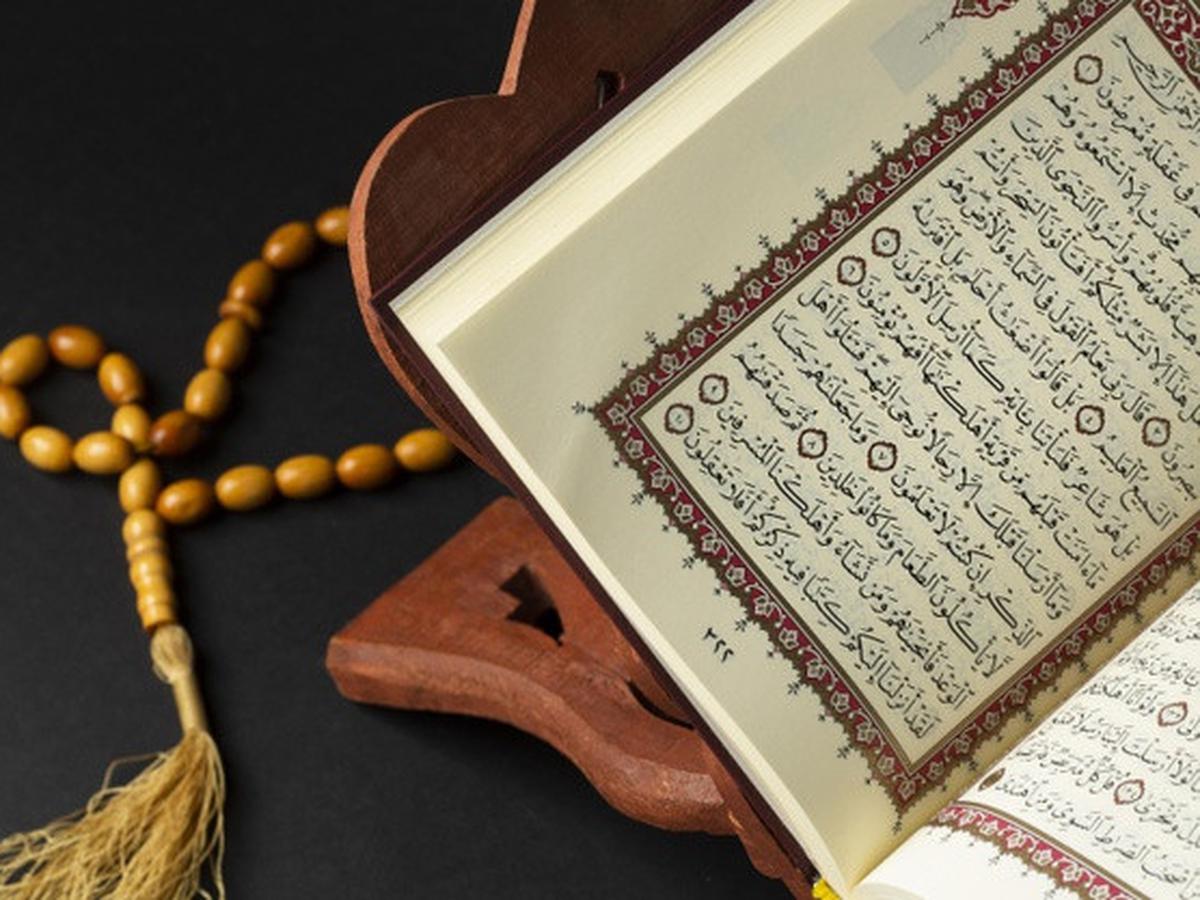 الرَّحْمَٰنِ الرَّحِيمِ
فِي غَفْلَةٍ مُّعْرِضُونَ ١
مُّحْدَثٍ إِلَّا اسْتَمَعُوهُ وَهُمْ
لَاهِيَةً قُلُوبُهُمْ وَأَسَرُّوا النَّجْوَى الَّذِينَ
هَلْ هَٰذَا إِلَّا بَشَرٌ مِّثْلُكُمْ أَفَتَأْتُونَ السِّحْرَ وَأَنتُمْ
تُبْصِرُونَ ٣ قَالَ رَبِّي يَعْلَمُ الْقَوْلَ فِي السَّمَاءِ وَالْأَرْضِ وَهُوَ
السَّمِيعُ الْعَلِيمُ ٤ بَلْ قَالُوا أَضْغَاثُ أَحْلَامٍ بَلِ افْتَرَاهُ
بَلْ هُوَ شَاعِرٌ فَلْيَأْتِنَا بِآيَةٍ كَمَا أُرْسِلَ الْأَوَّلُونَ ٥
مَا آمَنَتْ قَبْلَهُم مِّن قَرْيَةٍ أَهْلَكْنَاهَا أَفَهُمْ يُؤْمِنُونَ ٦
وَمَا أَرْسَلْنَا قَبْلَكَ إِلَّا رِجَالًا نُّوحِي إِلَيْهِمْ فَاسْأَلُوا أَهْلَ
الذِّكْرِ إِن كُنتُمْ لَا تَعْلَمُونَ ٧ وَمَا جَعَلْنَاهُمْ جَسَدًا
لَّا يَأْكُلُونَ الطَّعَامَ وَمَا كَانُوا خَالِدِينَ ٨ ثُمَّ صَدَقْنَاهُمُ
الْوَعْدَ فَأَنجَيْنَاهُمْ وَمَن نَّشَاءُ وَأَهْلَكْنَا الْمُسْرِفِينَ ٩
لَقَدْ أَنزَلْنَا إِلَيْكُمْ كِتَابًا فِيهِ ذِكْرُكُمْ أَفَلَا تَعْقِلُونَ ١٠
٣٢٢
لَوْلَا أَرْسَلْتَ إِلَيْنَا رَسُولًا
وَنَخْزَىٰ ١٣٤ قُلْ كُلٌّ مُّتَرَبِّصٌ
أَصْحَابُ الصِّرَاطِ السَّوِيِّ وَمَنِ اهْتَدَىٰ